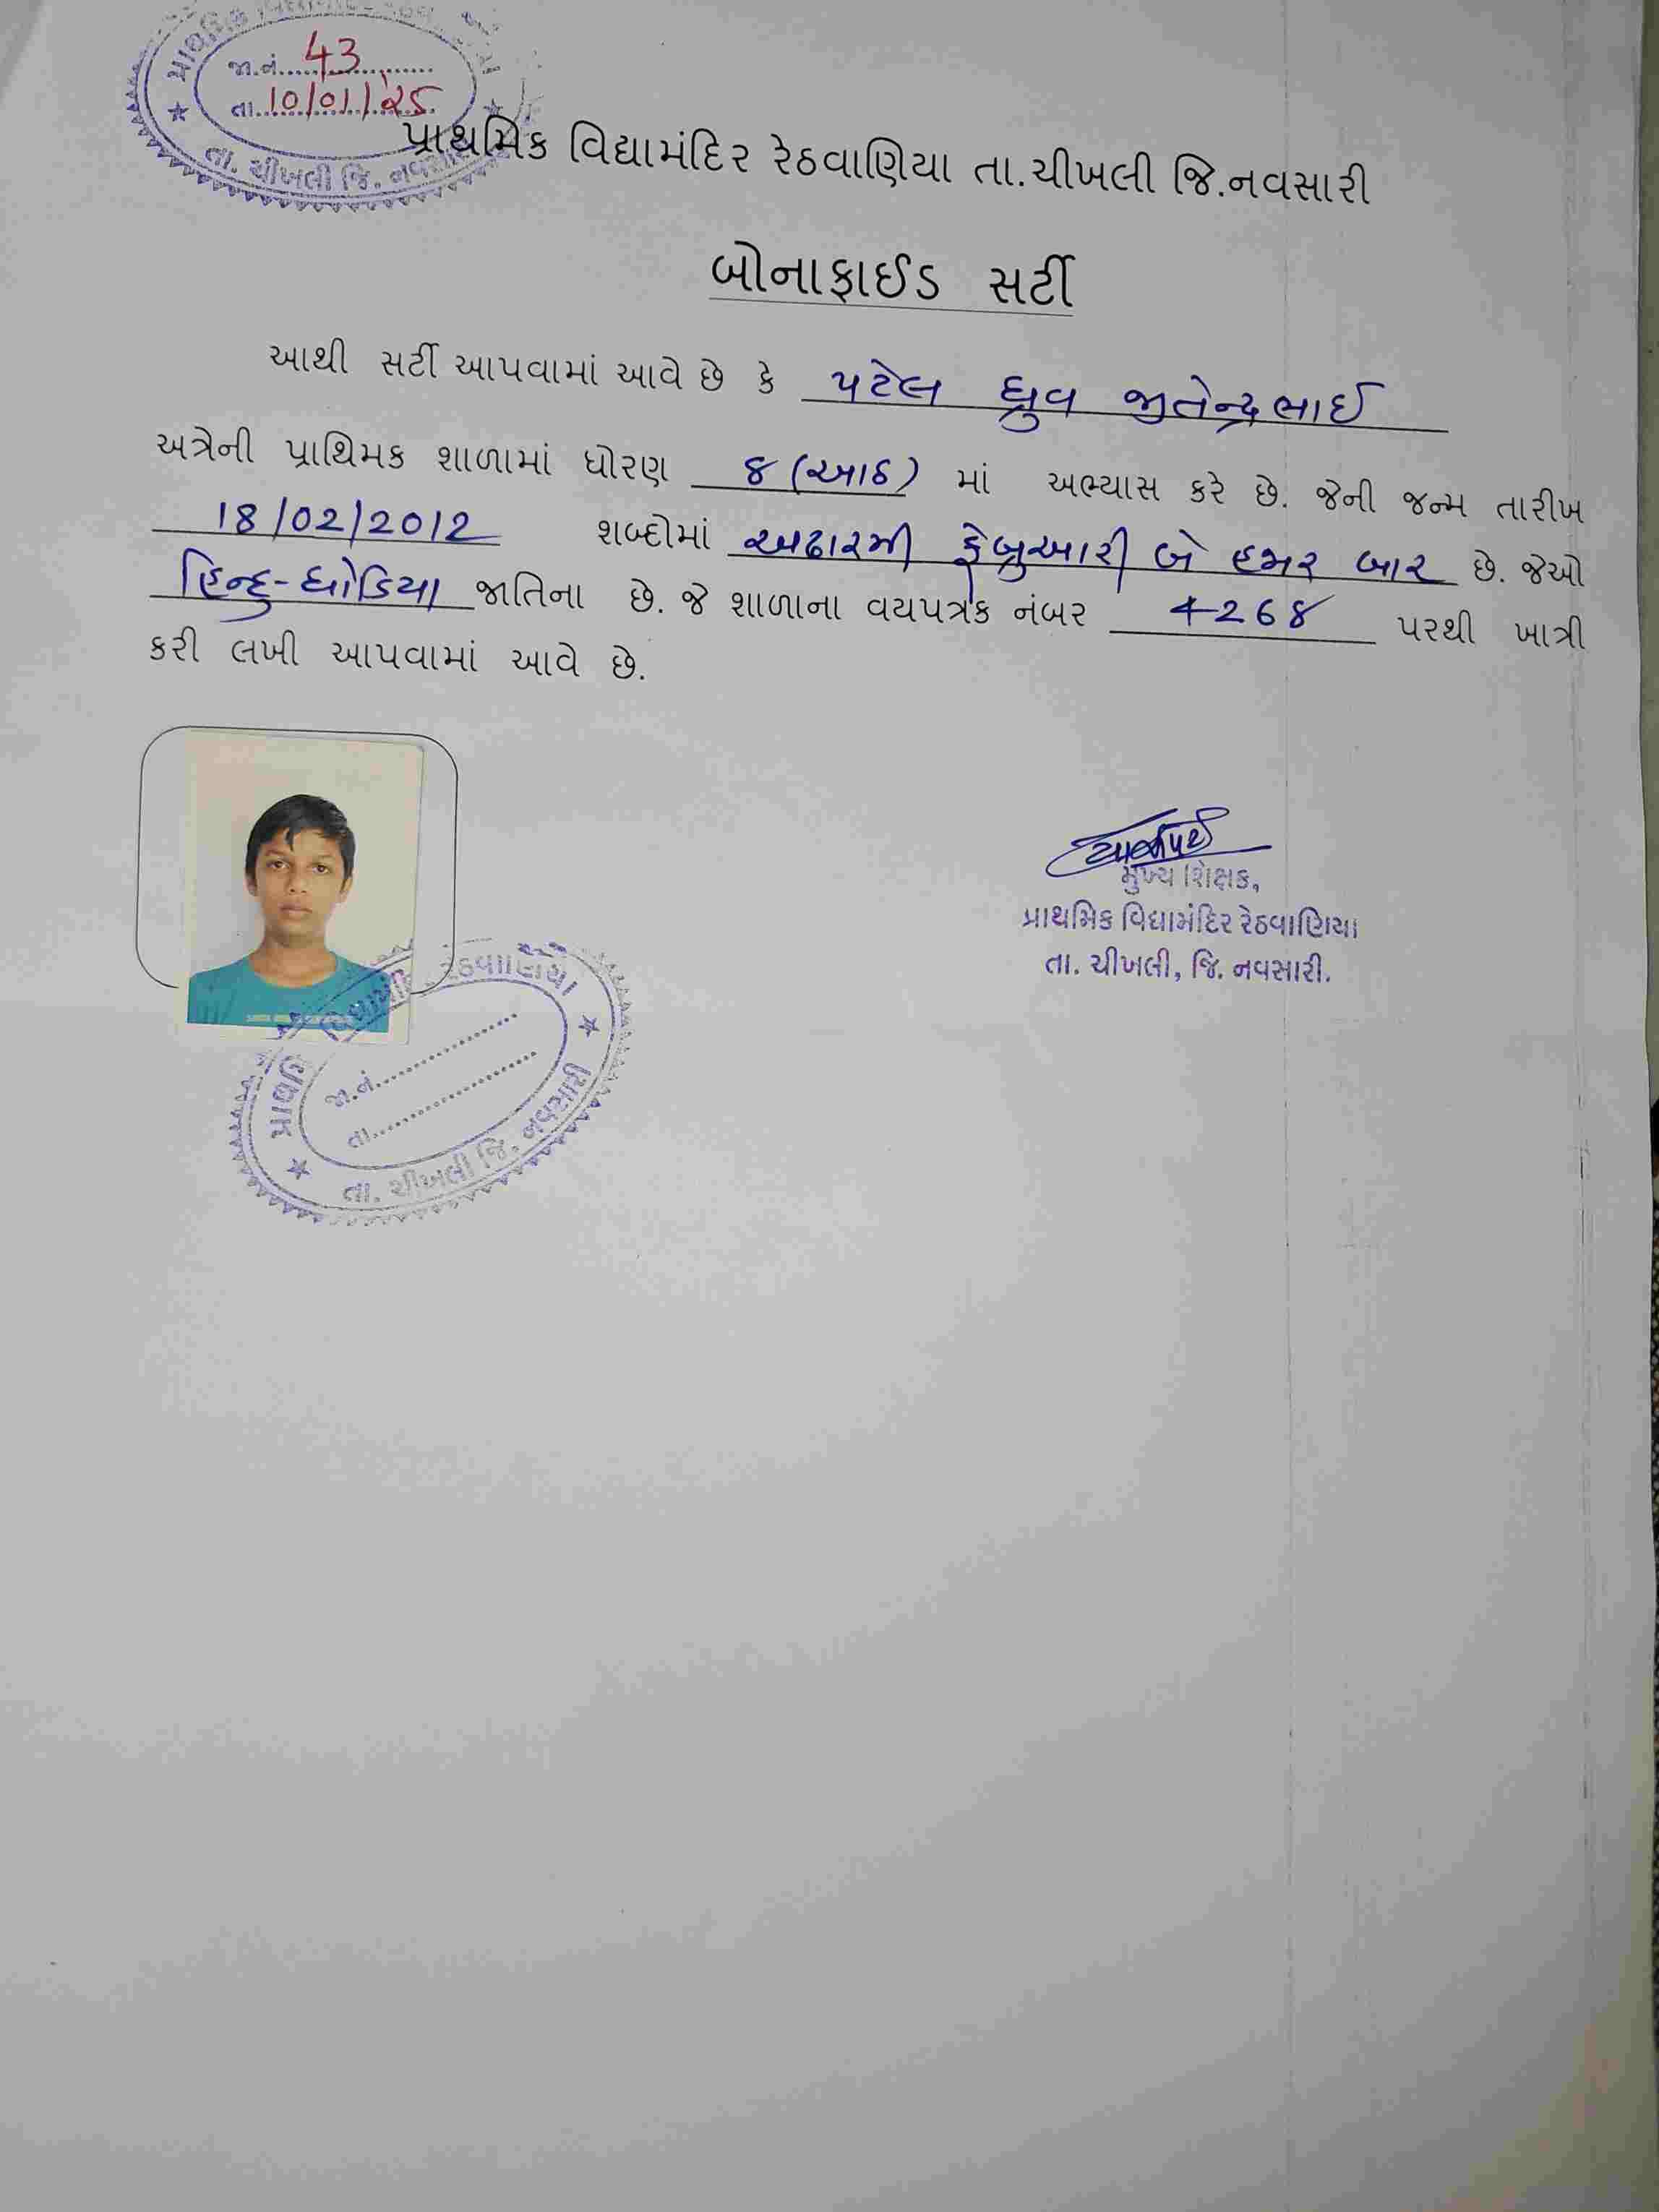 પ્રાથમિક
જા.નં. 43
તા. 10/01/25
તા. ચીખલી જિ. નવસારી
પ્રાથમિક વિદ્યામંદિર રેઠવાણિયા તા.ચીખલી જિ.નવસારી
બોનાફાઈડ સર્ટી
આથી સર્ટી આપવામાં આવે છે કે પટેલ ધ્રુવ જીતેન્દ્રભાઈ
અત્રેની પ્રાથિમક શાળામાં ધોરણ ૪ (આઠ) માં અભ્યાસ કરે છે. જેની જન્મ તારીખ
18/02/2012 શબ્દોમાં અઢારમી ફેબ્રુઆરી બે હજાર બાર છે. જેઓ
હિન્દુ-ધોડિયા જાતિના છે. જે શાળાના વયપત્રક નંબર 4268 પરથી ખાત્રી
કરી લખી આપવામાં આવે છે.
મુખ્ય શિક્ષક,
પ્રાથમિક વિદ્યામંદિર રેઠવાણિયા
તા. ચીખલી, જિ. નવસારી.
રેઠવાણિયા
જા.નં.
તા.
તા. ચીખલી જિ. નવસારી